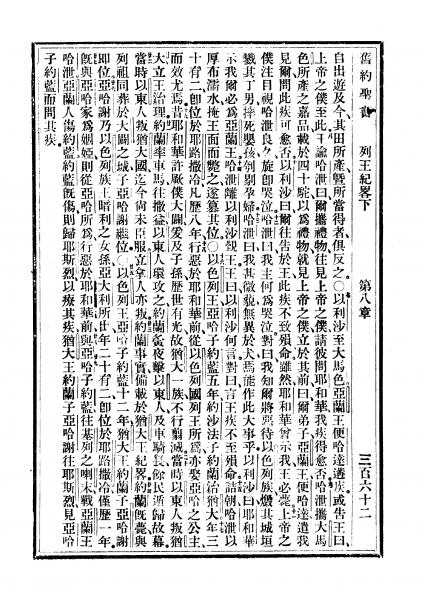 舊約聖書　列王紀畧下　第八章　三百六十二
自出遊及今其田所產曁所當得者俱反之〇以利沙至大馬色亞蘭王便哈達遘疾或告王曰
上帝之僕至此王諭哈泄曰爾攜禮物往見上帝之僕請彼問耶和華我疾得愈否哈泄攜大馬
色所產之嘉品載於四十駝以爲禮物就見上帝之僕立於其前曰爾弟子亞蘭王便哈達遣我
見爾問此疾可愈否以利沙曰爾往告於王此疾不致殞命雖然耶和華曾示我王必薨上帝之
僕注目視哈泄良久旋卽哭泣哈泄曰我主何爲哭泣對曰我知爾將惡待以色列族燬其城垣
戮其丁男摔死嬰孩刳剔孕婦哈泄曰我其微藐無異於犬焉能作此大事乎以利沙曰耶和華
示我爾必爲亞蘭王哈泄離以利沙覲王王曰以利沙何言對曰言王疾不至殞命詰朝哈泄以
厚布濡水掩王面而斃之遂篡其位〇以色列王亞哈子約藍五年約沙法子約蘭治猶大年三
十有二卽位於耶路撒冷凡歷八年行惡於耶和華前從以色列國列王所爲亦娶亞哈之公主
而效尤焉昔耶和華許厥僕大闢爰及子孫歷世有光故猶大一族不行翦滅當時以東人叛猶
大立王治理約蘭率車馬往撒益以東人環攻之約蘭夤夜擊以東人及車騎長餘民遁歸故幕
當時以東人叛猶大國迄今尙未臣服立拿人亦叛約蘭事實備載於猶大王紀畧約蘭旣薨與
列祖同葬於大闢之城子亞哈謝繼位〇以色列王亞哈子約藍十二年猶大王約蘭子亞哈謝
卽位亞哈謝乃以色列族王暗利之女孫亞大利所出年二十有二卽位於耶路撒冷僅歷一年
旣與亞哈家爲姻婭則從亞哈所爲行惡於耶和華前與亞哈子約藍往基列之喇末戰亞蘭王
哈泄亞蘭人傷約藍約藍旣傷則歸耶斯烈以療其疾猶大王約蘭子亞哈謝往耶斯烈見亞哈
子約藍而問其疾